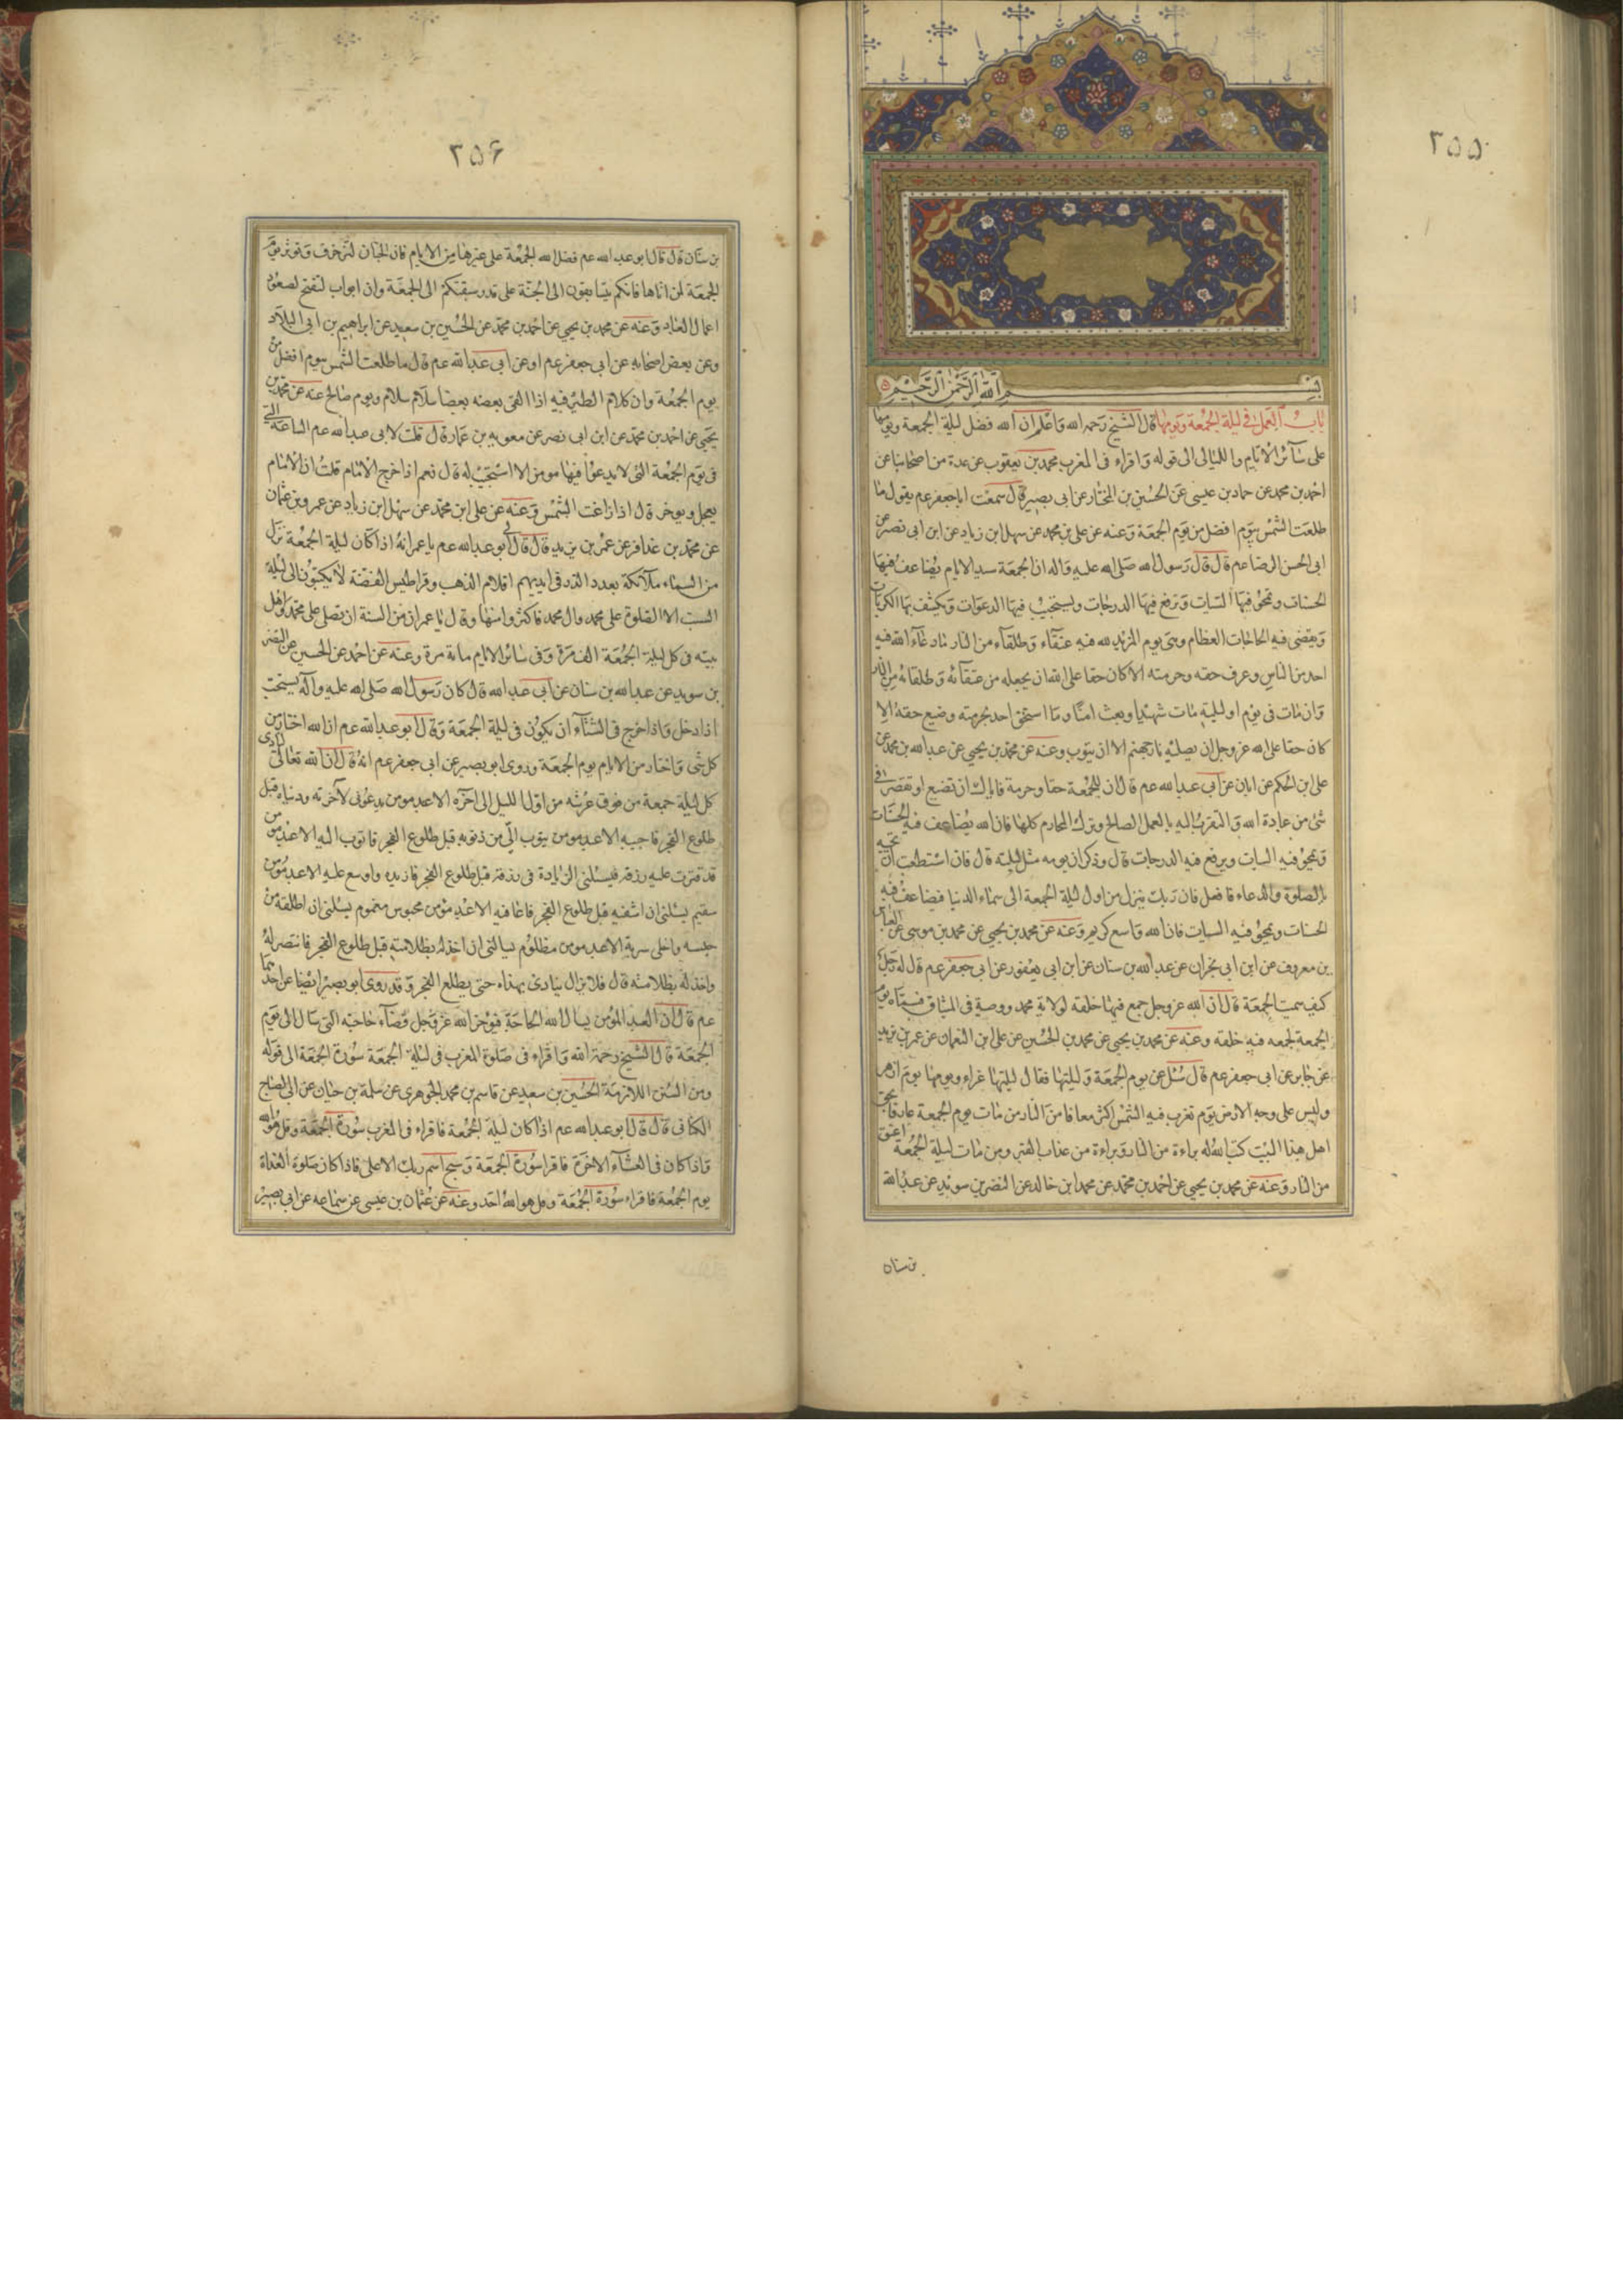 ٢٥٥
بسم الله الرحمن الرحيم
باب العمل فى ليلة الجمعة ويومها قال الشيخ رحمه الله واعلم ان الله فضل ليلة الجمعة ويومها
على سآئر الايام والليالى الى قوله واقراء فى المغرب محمد بن يعقوب عن عدة من اصحابنا عن
احمد بن محمد عن حماد بن عيسى عن الحسين بن المختار عن ابى بصير قال سمعت ابا جعفر عم يقول ما
طلعت الشمس بيوم افضل من يوم الجمعة وعنه عن على بن محمد عن سهل ابن زياد عن ابن ابى نصر عن
ابى الحسن الرضا عم قال قال رسول الله صلى الله عليه واله ان الجمعة سيد الايام يضاعف فيها
الحسنات وتمحو فيها السيات وترفع فيها الدرجات ويستجيب فيها الدعوات وتكشف بها الكربات
ويقضى فيه الحاجات العظام وهى يوم المزيد لله فيه عتقاء وطلقاء من النار مادعاء الله فيه
احد من الناس وعرف حقه وحرمته الا كان حقا على الله ان يجعله من عتقآئه وطلقائه من النار
وان مات فى يوم او ليلته مات شهيدا وبعث امنا وما استخف احد بحرمته وضيع حقه الا
كان حقا على الله عز وجل ان يصليه نار جهنم الا ان يتوب وعنه عن محمد بن يحيى عن عبد الله بن محمد عن
على ابن الحكم عن ابان عن ابى عبد الله عم قال ان للجمعة حقا وحرمة فاياك ان تضيع او تقصر فى
شئ من عبادة الله والتقرب اليه بالعمل الصالح وترك المحارم كلها فان الله يضاعف فيه الحسنات
ويمحو فيه السيات ويرفع فيه الدرجات قال وذكر ان يومه مثل ليلته قال فان استطعت ان تحييه
بالصلوة والدعاء فافعل فان ربك ينزل من اول ليلة الجمعة الى سماء الدنيا فيضاعف فيه
الحسنات ويمحو فيه السيات فان الله واسع كريم وعنه عن محمد بن يحيى عن محمد بن موسى عن العباس
بن معروف عن ابن ابى نجران عن عبد الله بن سنان عن ابن ابى يعفور عن ابى جعفر عم قال له رجل
كيف سميت الجمعة قال ان الله عز وجل جمع فيها خلقه لولاية محمد ووصية فى الميثاق فسماه يوم
الجمعة لجمعه فيه خلقه وعنه عن محمد بن يحيى عن محمد بن الحسين عن على ابن النعمان عن عمر بن يزيد
عن جابر عن ابى جعفر عم قال سئل عن يوم الجمعة وليلتها فقال ليلتها غراء ويومها يوم ازهر
وليس على وجه الارض يوم تغرب فيه الشمس اكثر معافا من النار من مات يوم الجمعة عارفا بحق
اهل هذا البيت كتب الله له براءة من النار وبراءة من عذاب القبر ومن مات ليلة الجمعة اعتق
من النار وعنه عن محمد بن يحيى عن احمد بن محمد عن محمد ابن خالد عن النضر بن سويد عن عبد الله
بن سنان
٢٥۶
بن سنان قال قال ابو عبد الله عم فضل الله الجمعة على غيرها من الايام فان الجنان لتزخرف وتزين يوم
الجمعة لمن اتاها فانكم تتسابقون الى الجنة على قدر سبقكم الى الجمعة وان ابواب لتفتح لصعود
اعمال العباد وعنه عن محمد بن يحيى عن احمد بن محمد عن الحسين بن سعيد عن ابراهيم بن ابى البلاد
وعن بعض اصحابه عن ابى جعفر عم او عن ابى عبد الله عم قال ما طلعت الشمس بيوم افضل من
يوم الجمعة وان كلام الطير فيه اذا القى بعضه بعضا سلام سلام ويوم صالح عنه عن محمد بن
يحيى عن احمد بن محمد عن ابن ابى نصر عن معوية بن عمار قال قلت لابى عبد الله عم الساعة التى
فى يوم الجمعة التى لا يدعوا فيها مومن الا استجيب له قال نعم اذا خرج الامام قلت ان الامام
يعجل ويوخر قال اذا زاغت الشمس وعنه عن على ابن محمد عن سهل ابن زياد عن عمرو بن عثمان
عن محمد بن عذافر عن عمر بن يزيد قال قال لى ابو عبد الله عم يا عمر انه اذا كان ليلة الجمعة نزل
من السماء ملآئكة بعدد الذر فى ايديهم اقلام الذهب وقراطيس الفضة لا يكتبون الى ليلة
السبت الا الصلوة على محمد وال محمد فاكثر واسنها وقال يا عمر ان من السنة ان تصلى على محمد واهل
بيته فى كل ليلة الجمعة الف مرة وفى سائر الايام مائة مرة وعنه عن احمد عن الحسين عن النضر
بن سويد عن عبد الله بن سنان عن ابى عبد الله قال كان رسول الله صلى الله عليه وآله يستحب
اذا دخل واذا خرج فى الشتآء ان يكون فى ليلة الجمعة وقال ابو عبد الله عم ان الله اختار من
كل شى واختار من الايام يوم الجمعة وروى ابو بصير عن ابى جعفر عم انه قال ان الله تعالى ينادى
كل ليلة جمعة من فوق عرشه من اول الليل الى اخره الا عبد مومن يدعونى لآخرته ودنياه قبل
طلوع الفجر فاجيبه الا عبد مومن يتوب الى من ذنوبه قبل طلوع الفجر فاتوب اليه الا عبد مومن
قد قترت عليه رزقه فيسئلنى الزيادة فى رزقه قبل طلوع الفجر فازيده واوسع عليه الا عبد مومن
سقيم يسئلنى ان اشفيه قبل طلوع الفجر فاعافيه الا عبد مؤمن محبوس مغموم يسئلنى ان اطلقه من
حبسه واخلى سربه الا عبد مومن مظلوم يسالنى ان اخذ له بظلامته قبل طلوع الفجر فانتصر له
واخذ له بظلامته قال فلا يزال ينادى بهذا حتى يطلع الفجر وقد روى ابو بصير ايضا عن احدهما
عم قال ان العبد المؤمن يسال الله الحاجة فيوخر الله عز وجل قضاء حاجته التى سال الى يوم
الجمعة قال الشيخ رحمة الله واقراء فى صلوة المغرب فى ليلة الجمعة سورة الجمعة الى قوله
ومن السنن اللازمة الحسين بن سعيد عن قاسم بن محمد الجوهرى عن سلمة بن حيان عن ابى الصباح
الكنانى قال قال ابو عبد الله عم اذا كان ليلة الجمعة فاقراء فى المغرب سورة الجمعة وقل هو الله
واذا كان فى العشآء الاخرة فاقرا سورة الجمعة وسبح اسم ربك الاعلى فاذا كان صلوة الغداة
يوم الجمعة فاقراء سورة الجمعة وقل هو الله احد وعنه عن عثمان بن عيسى عن سماعه عن ابى بصير